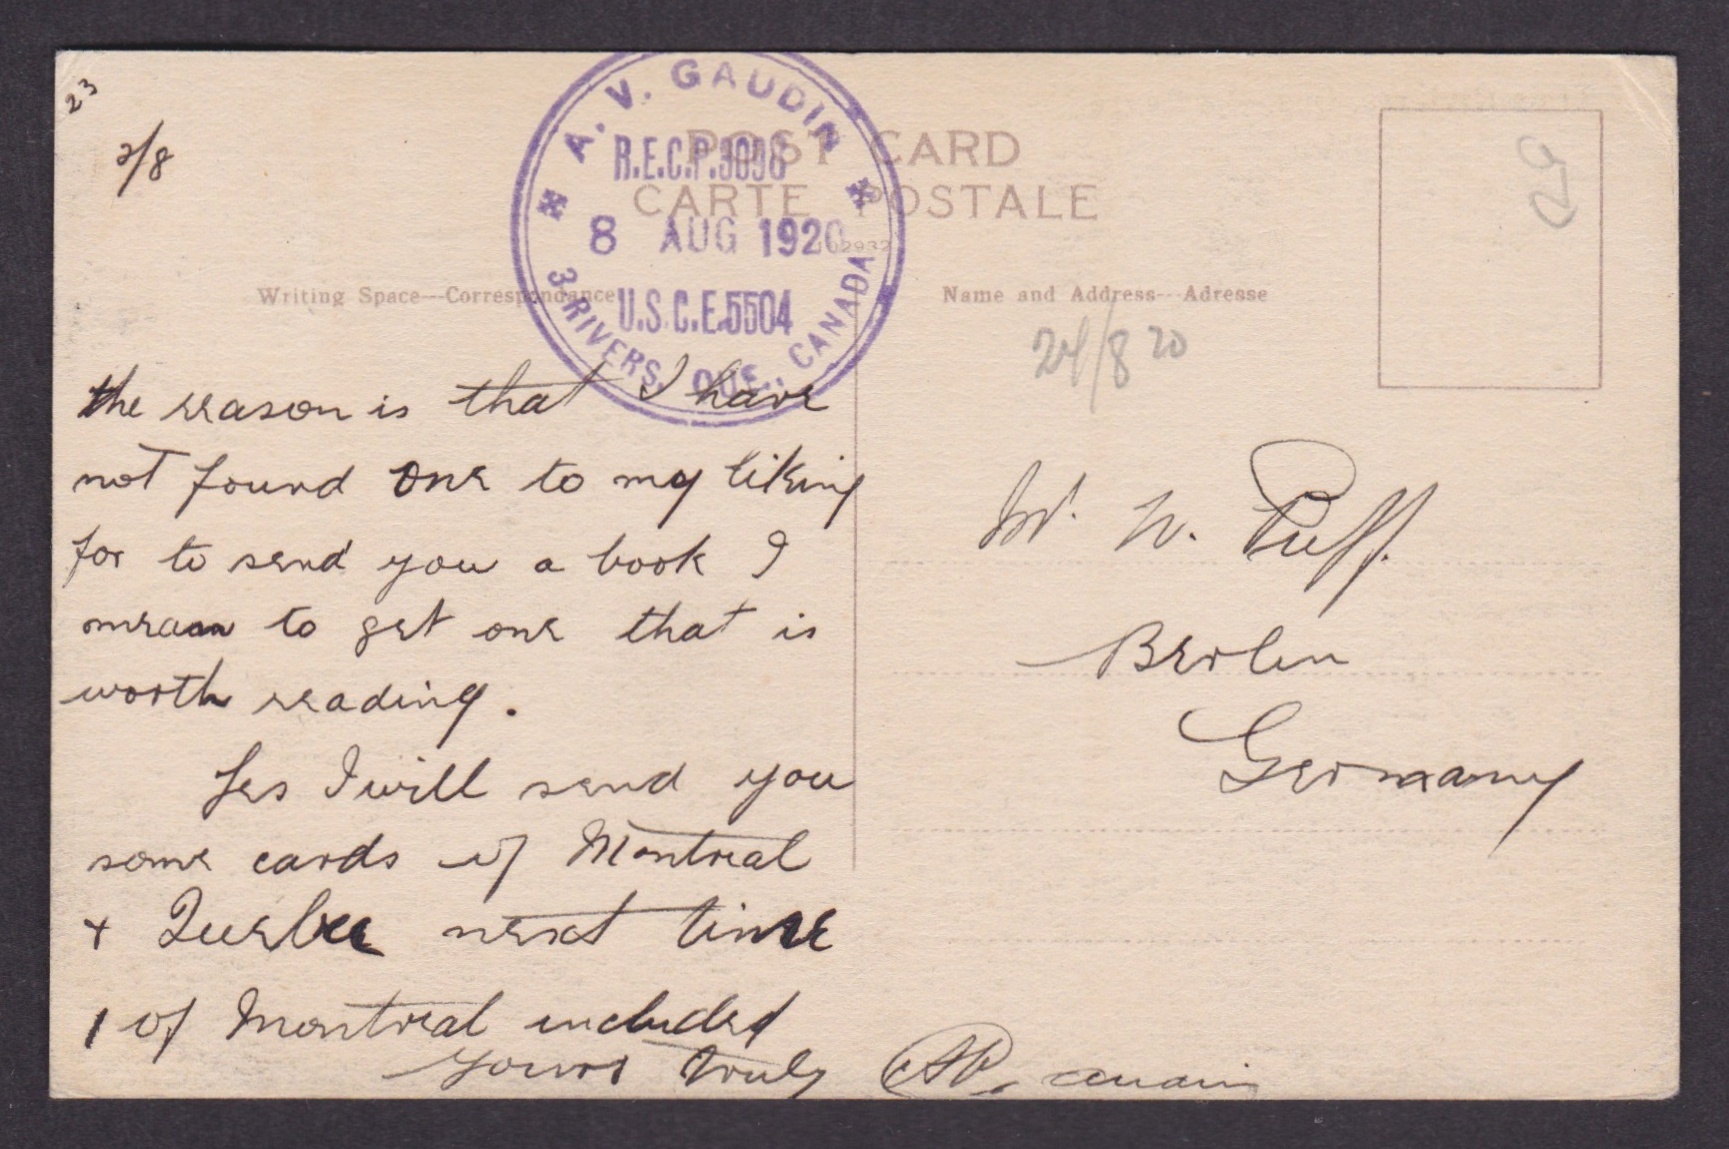 23
2/8
A. V. GAUDIN
R.E.C.P.3098
8 AUG 1920
U.S.C.E.5504
3 RIVERS, QUE., CANADA
POST CARD
CARTE POSTALE
Writing Space--Correspondance
Name and Address--Adresse
24/8 20
the reason is that I have
not found one to my liking
for to send you a book I
mean to get one that is
worth reading.
Yes I will send you
some cards of Montreal
+ Quebec next time
1 of Montreal included
yours truly AV. Gaudin
W. Puff.
Berlin
Germany